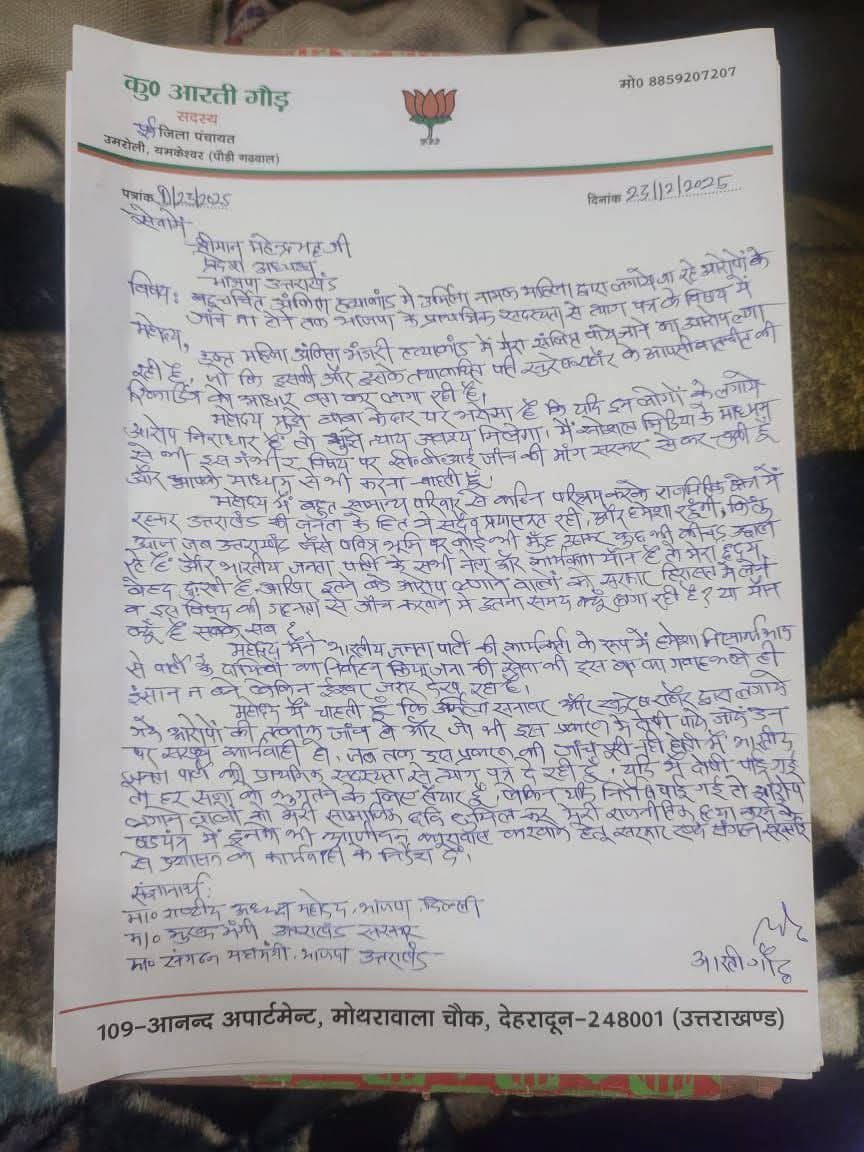 कु0 आरती गौड़
सदस्य
पूर्व जिला पंचायत
उमरोली, यमकेश्वर (पौड़ी गढवाल)
मो0 8859207207
पत्रांक 9/23/2025
दिनांक 23/12/2025
सेवा में
श्रीमान महेन्द्र भट्ट जी
प्रदेश अध्यक्ष
भाजपा उत्तराखंड
विषय: बहुचर्चित अंकिता हत्याकांड मे उर्मिला नामक महिला द्वारा लगाये जा रहे आरोपों के
जांच ना होने तक भाजपा के प्राथमिक सदस्यता से त्याग पत्र के विषय में
महोदय,
उक्त महिला अंकिता भंडारी हत्याकांड में मेरा संलिप्त पाये जाने का आरोप लगा
रही है, जो कि इसकी और इसके तथाकथित पति सुरेश राठौर के आपसी बातचीत की
रिकार्डिंग को आधार बना कर लगा रही है।
महोदय मुझे बाबा केदार पर भरोसा है कि यदि इन लोगों के लगाये
आरोप निराधार है तो मुझे न्याय अवश्य मिलेगा। मैं सोशल मिडिया के माध्यम
से भी इस गंभीर विषय पर सी०बी०आई जाँच की मांग सरकार से कर चुकी हूँ
और आपके माध्यम से भी करना चाहती हूँ।
महोदय मैं बहुत सामान्य परिवार से कठिन परिश्रम करके राजनितिक क्षेत्र में
रहकर उत्तराखंड की जनता के हित मे सदैव प्रयासरत रही, और हमेशा रहूँगी, किन्तु
आज जब उत्तराखंड जैसे पवित्र भूमि पर कोई भी मुँह उठाकर कुछ भी कीचड़ उछाल
रहे हैं और भारतीय जनता पार्टी के सभी नेता और कार्यकर्ता मौन है तो मेरा हृदय
बेहद दुःखी है, आखिर इतने बड़े आरोप लगाने वालों को सरकार हिरासत में लेने
व इस विषय की गहनता से जाँच करवाने मे इतना समय क्यूँ लगा रही है? या मौन
क्यूँ है सबके सब?
महोदय मैंने भारतीय जनता पार्टी की कार्यकर्ता के रूप में हमेशा निस्वार्थ भाव
से पार्टी के दायित्वों का निर्वाहन किया जनता की सेवा की इस बात का गवाह भले ही
इंसान न बने लेकिन ईश्वर जरूर देख रहा है।
महोदय मैं चाहती हूँ कि उर्मिला सनावर और सुरेश राठौर द्वारा लगाये
गये आरोपों की तत्काल जांच हो और जो भी इस प्रकरण मे दोषी पाये जाये उन
पर सख्त कार्यवाही हो, जब तक इस प्रकरण की जाँच पूरी नही होती मैं भारतीय
जनता पार्टी की प्राथमिक सदस्यता से त्याग पत्र दे रही हूँ, यदि मैं दोषी पाई गई
तो हर सजा को भुगतने के लिए तैयार हूँ, लेकिन यदि निर्दोष पाई गई तो आरोप
लगाने वालों को मेरी सामाजिक छवि धूमिल कर मेरी राजनीतिक हत्या करने के
षडयंत्र में इनको भी आजीवन कारावास करवाने हेतु सरकार एवं संगठन सरकार
से प्रशासन को कार्यवाही के निर्देश दें।
संज्ञानार्थ:
मा० राष्ट्रीय अध्यक्ष महोदय, भाजपा दिल्ली
मा० मुख्य मंत्री उत्तराखंड सरकार
मा० संगठन महामंत्री, भाजपा उत्तराखंड
आरती गौड़
109-आनन्द अपार्टमेन्ट, मोथरावाला चौक, देहरादून-248001 (उत्तराखण्ड)